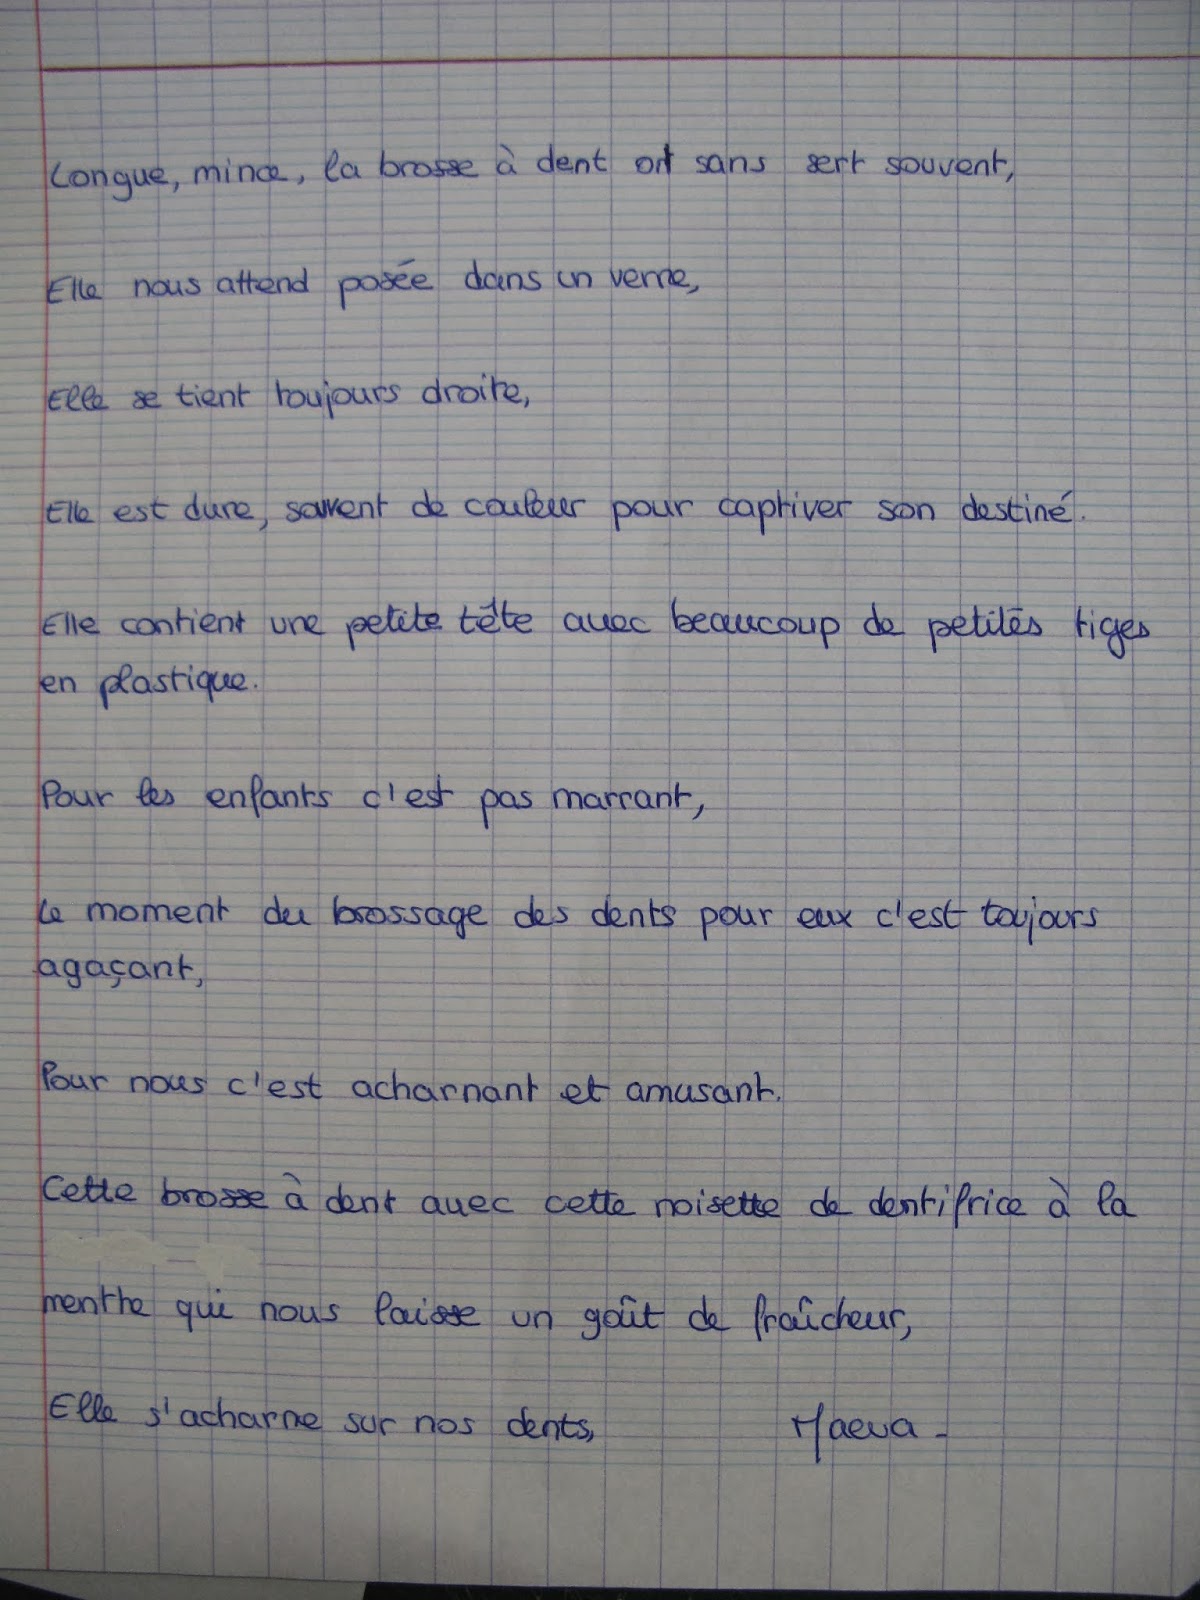 Longue, mince, la brosse à dent on sans sert souvent,
Elle nous attend posée dans un verre,
Elle se tient toujours droite,
Elle est dure, souvent de couleur pour captiver son destiné.
Elle contient une petite tête avec beaucoup de petités tiges
en plastique.
Pour les enfants c'est pas marrant,
Le moment du brossage des dents pour eux c'est toujours
agaçant,
Pour nous c'est acharnant et amusant.
Cette brosse à dent avec cette noisette de dentifrice à la
menthe qui nous laisse un goût de fraîcheur,
Elle s'acharne sur nos dents, Maeva -